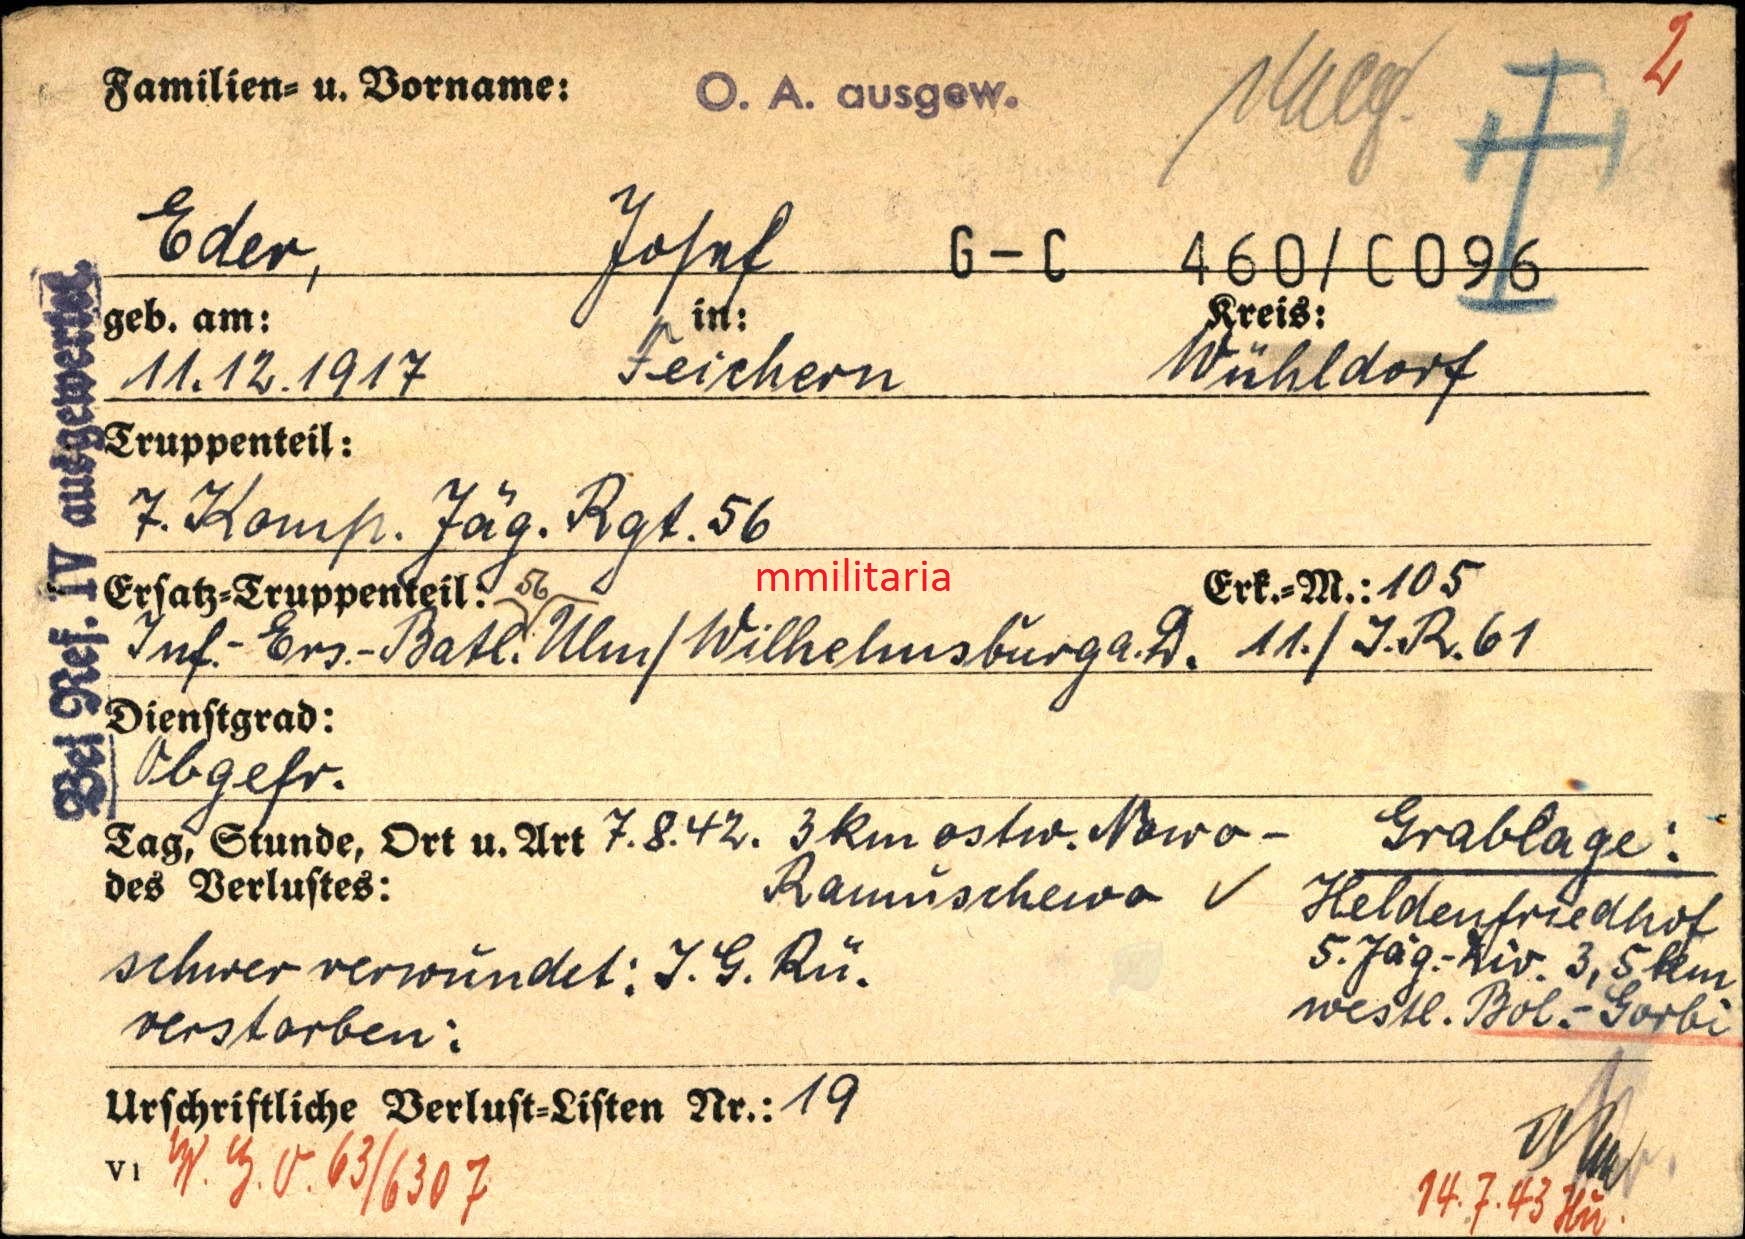 2
Familien- u. Vorname:
O. A. ausgew.
Eder, Josef G-C 460/C096
geb. am: in: Kreis:
11.12.1917 Feichern Wühldorf
Truppenteil:
7. Komp. Jäg. Rgt. 56
Ersatz-Truppenteil: 56 Erk.-M.: 105
mmilitaria
Inf.-Ers.-Batl. Ulm/Wilhelmsburg a. D. 11./I.R. 61
Dienstgrad:
Obgefr.
Tag, Stunde, Ort u. Art 7.8.42. 3 km ostw. Nowo-
des Verlustes: Ramuschewo ✓
schwer verwundet: I. G. Rü.
verstorben:
Grablage:
Heldenfriedhof
5. Jäg.-Div. 3,5 km
westl. Bol.-Gorbi
Urschriftliche Verlust-Listen Nr.: 19
V1
63/6307
14.7.43
Bei Ref. IV ausgewertet.